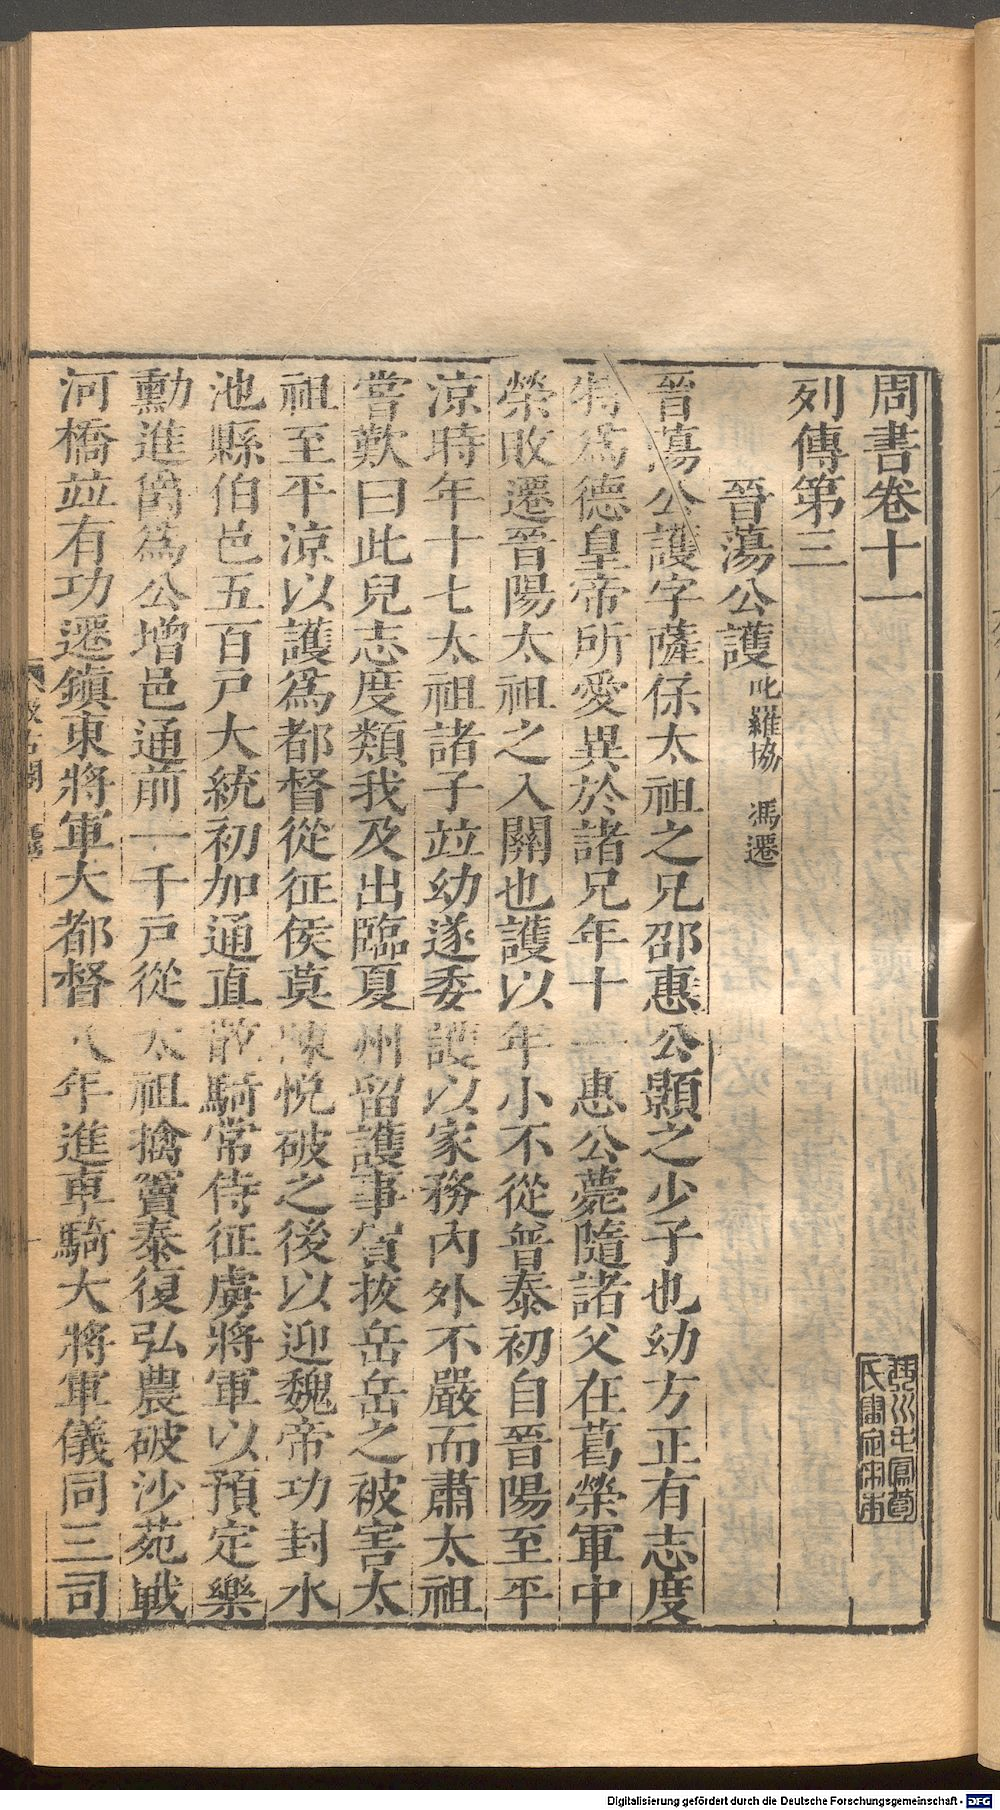 周書卷十一
列傳第三
晉蕩公護 叱羅協 馮遷
晉蕩公護字薩保太祖之兄邵惠公顥之少子也幼方正有志度
特爲德皇帝所愛異於諸兄年十一惠公薨隨諸父在葛榮軍中
榮敗遷晉陽太祖之入關也護以年小不從普泰初自晉陽至平
涼時年十七太祖諸子竝幼遂委護以家務內外不嚴而肅太祖
嘗歎曰此兒志度類我及出臨夏州留護事賀拔岳岳之被害太
祖至平涼以護爲都督從征侯莫陳悅破之後以迎魏帝功封水
池縣伯邑五百戸大統初加通直散騎常侍征虜將軍以預定樂
勳進爵爲公增邑通前一千戸從太祖擒竇泰復弘農破沙苑戰
河橋竝有功遷鎮東將軍大都督八年進車騎大將軍儀同三司
Digitalisierung gefördert durch die Deutsche Forschungsgemeinschaft - DFG